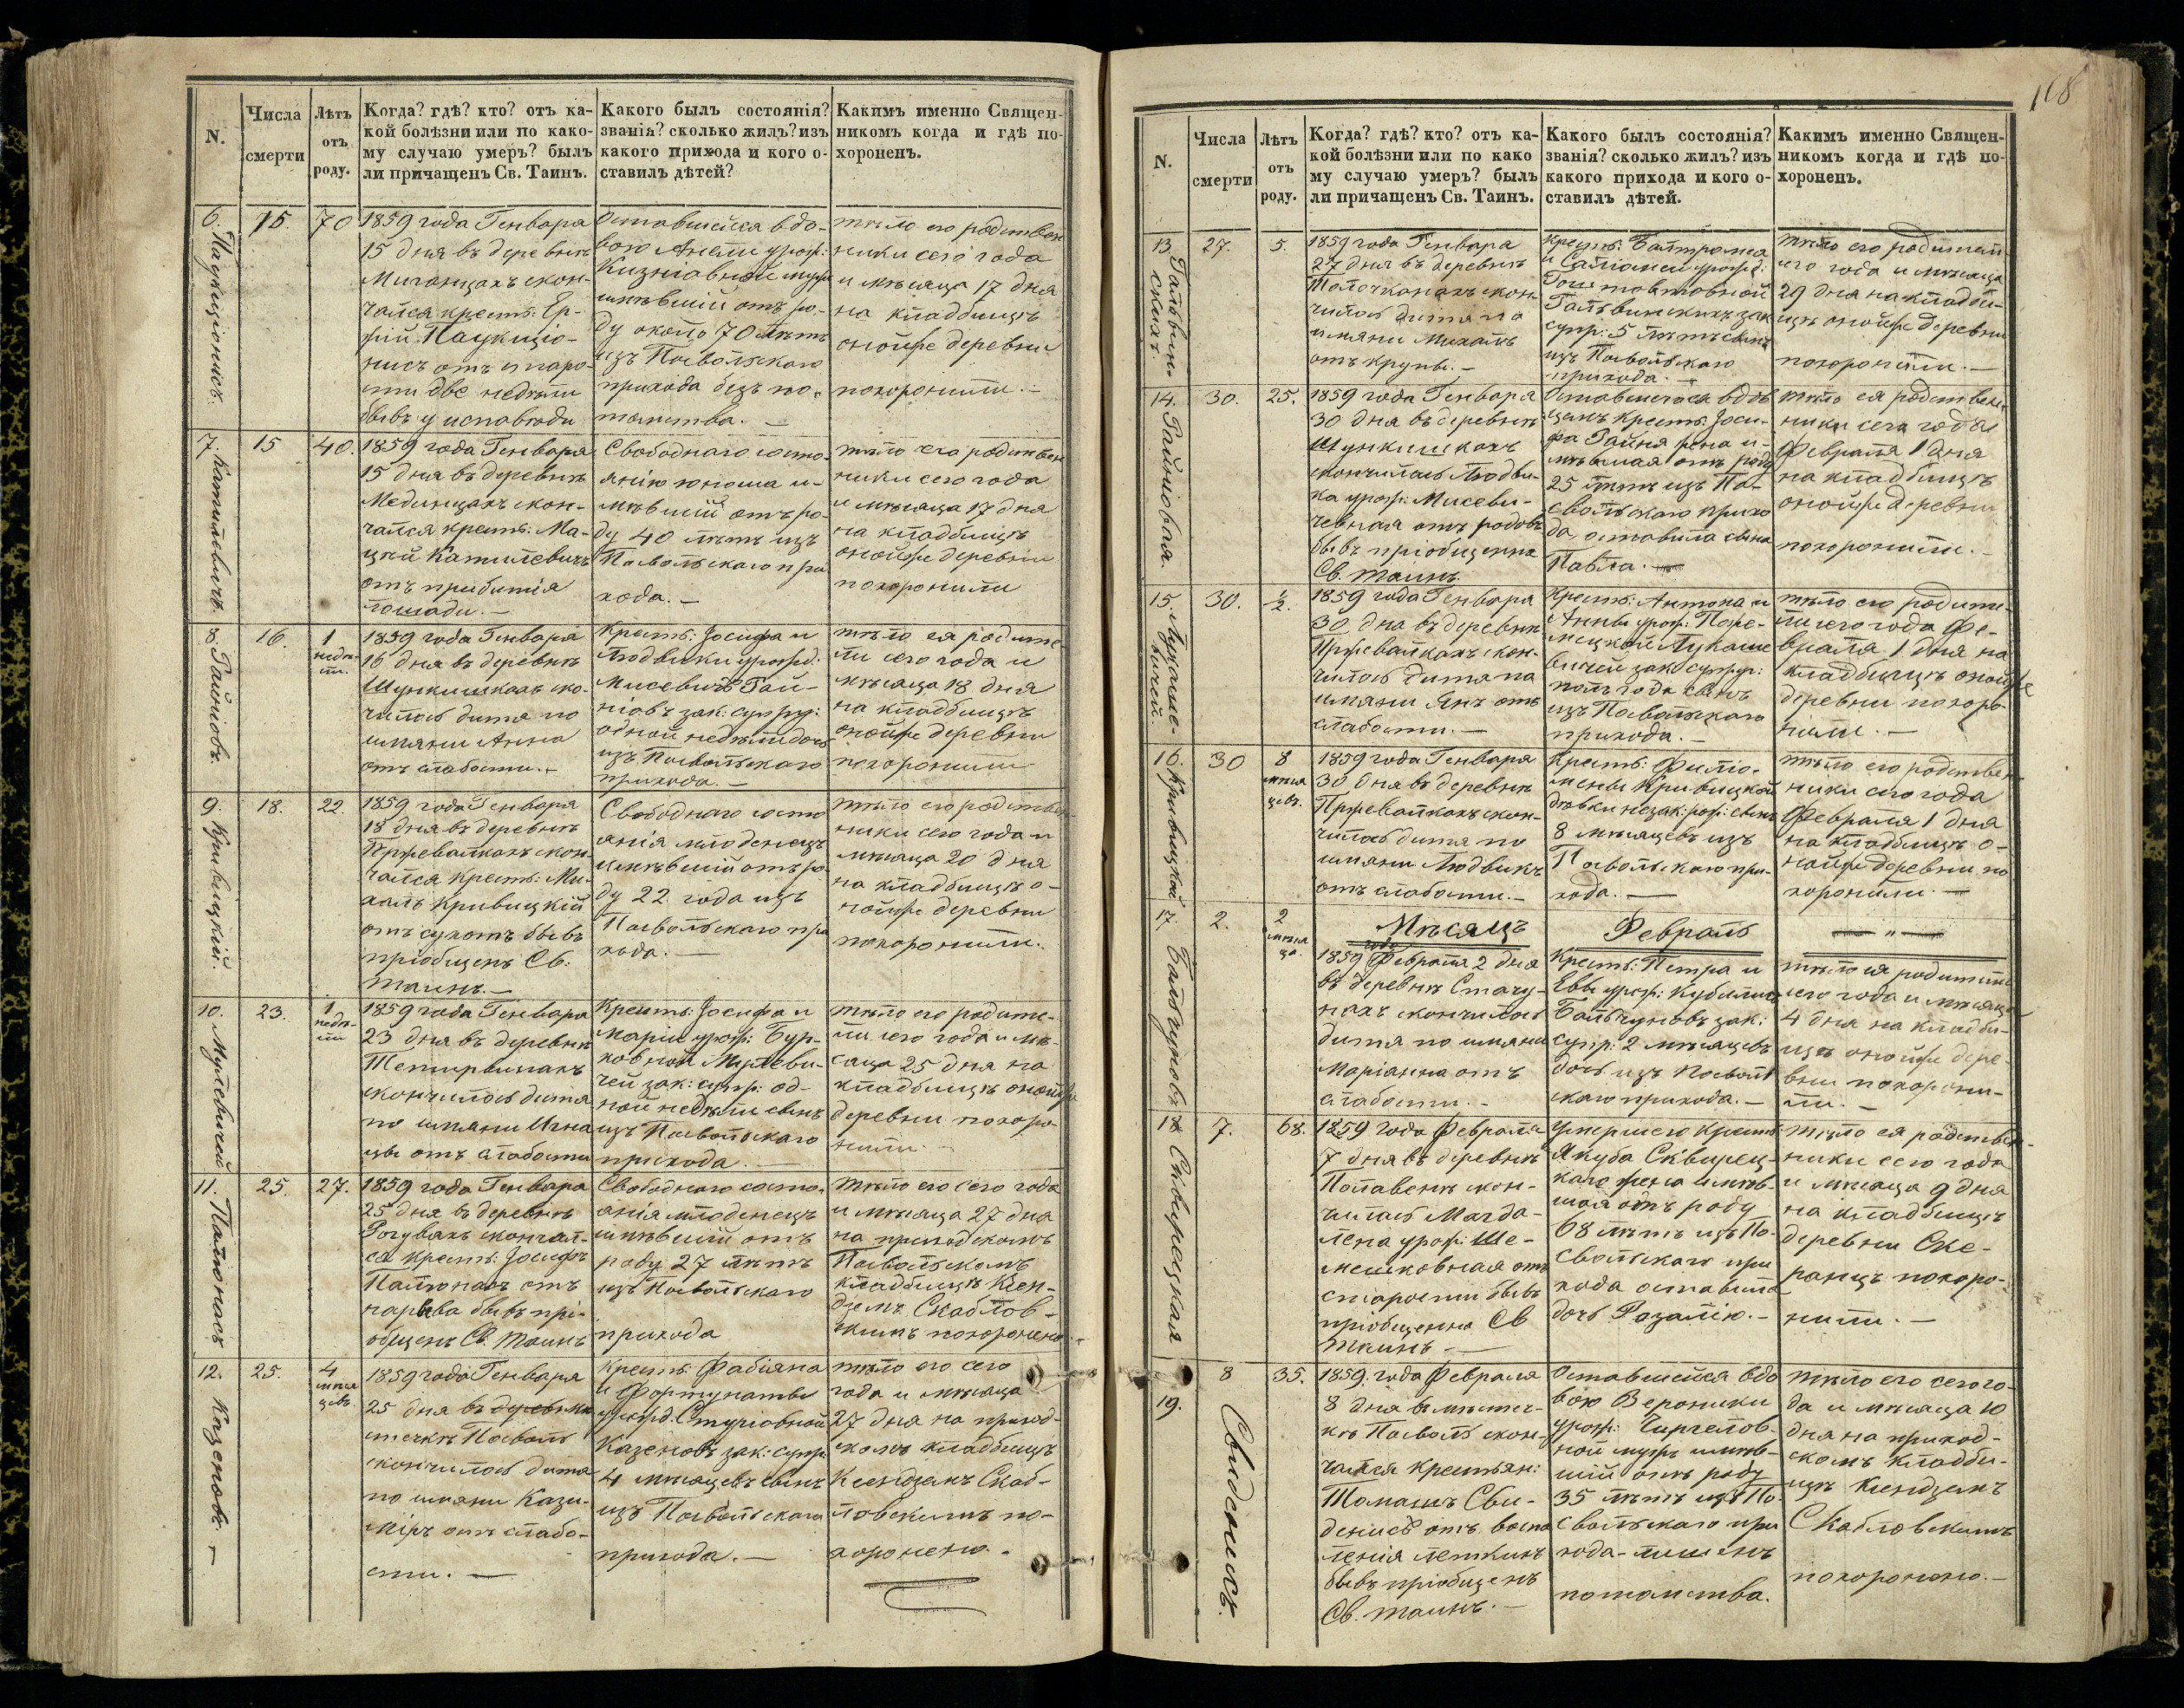 N.
Числа
смерти
Лѣтъ
отъ
роду.
Когда? гдѣ? кто? отъ ка-
кой болѣзни или по како-
му случаю умеръ? былъ
ли причащенъ Св. Таинъ.
Какого былъ состоянія?
званія? сколько жилъ? изъ
какого прихода и кого о-
ставилъ дѣтей?
Какимъ именно Священ-
никомъ когда и гдѣ по-
хороненъ.
6.
15.
70
1859 года Генваря
15 дня въ деревнѣ
скон-
чался крестъ:
две недѣли
бывъ у исповѣди
Оставшейся вдо-
вою Анели урож:
имѣвшій отъ ро-
ду около 70 лѣтъ
изъ Посвольскаго
прихода безъ по-
томства. —
тѣло его родствен
ники сего года
и мѣсяца 17 дня
на кладбищѣ
онойже деревни
похоронили. —
7. Катилевичъ.
15
40.
1859 года Генваря
15 дня въ деревнѣ
скон-
чался крестъ: Ма-
цѣй Катилевичъ
отъ прибитія
лошади. —
Свободнаго состо-
янію юноша и-
мѣвшій отъ ро-
ду 40 лѣтъ изъ
Посвольскаго при
хода. —
тѣло его родствен
ники сего года
и мѣсяца 17 дня
на кладбищѣ
онойже деревни
похоронили
8. Гайновъ.
16.
1
недѣ-
ли.
1859 года Генваря
16 дня въ деревнѣ
Шункишкахъ ско-
чилось дитя по
имяни Анна
отъ слабости. —
Крестъ: Іосифа и
Людвики урожд:
Мисевичъ Гай-
новъ зак: супру:
одной недѣли дочь
изъ Посвольскаго
прихода. —
тѣло ея родите-
ли сего года и
мѣсяца 18 дня
на кладбищѣ
онойже деревни
похоронили
9. Кривицкій.
18.
22.
1859 года Генваря
18 дня въ деревнѣ
Пржевалкахъ скон-
чался крестъ: Ми-
халъ Кривицкій
отъ сухотъ бывъ
пріобщенъ Св:
Таинъ. —
Свободнаго состо
янія млоденецъ
имѣвшій отъ ро-
ду 22 года изъ
Посвольскаго при
хода. —
тѣло его родствен-
ники сего года и
мѣсяца 20 дня
на кладбищѣ о-
нойже деревни
похоронили.
10.
23.
1
недѣ-
ли
1859 года Генваря
23 дня въ деревнѣ
скончилось дитя
по имяни Игна
цы отъ слабости
Крестъ: Іосифа и
Маріи урож: Бур-
ковной
чей зак: супр: од-
ной недѣли сынъ
изъ Посвольскаго
прихода. —
тѣло его родите-
ли сего года и мѣ-
сяца 25 дня на
кладбищѣ онойже
деревни похоро
нили
11. Палюнасъ
25.
27.
1859 года Генваря
25 дня въ деревнѣ
скончал-
ся крестъ: Іосифъ
Палюнасъ отъ
нарыва бывъ прі-
общенъ Св. Таинъ
Свободнаго состо-
янія млоденецъ
имѣвшій отъ
роду 27 лѣтъ
изъ Посвольскаго
прихода
Тѣло его сего года
и мѣсяца 27 дня
на приходскомъ
Посвольскомъ
кладбищѣ Ксен-
дземъ Скаблов-
скимъ похоронено. —
12. Казеновъ. —
25.
4
мѣся
цевъ.
1859 года Генваря
25 дня въ
стечкѣ Посволь
скончилось дитя
по имяни Кази-
міръ отъ слабо-
сти. —
Крестъ: Фабіяна
и Фортунаты
Казеновъ зак: супр:
4 мѣсяцевъ сынъ
изъ Посвольскаго
прихода. —
тѣло его сего
года и мѣсяца
27 дня на приход-
скомъ кладбищѣ
Ксендземъ Скаб-
ловскимъ по-
хоронено. —
108
N.
Числа
смерти
Лѣтъ
отъ
роду.
Когда? гдѣ? кто? отъ ка-
кой болѣзни или по како
му случаю умеръ? былъ
ли причащенъ Св. Таинъ.
Какого былъ состоянія?
званія? сколько жилъ? изъ
какого прихода и кого о-
ставилъ дѣтей.
Какимъ именно Священ-
никомъ когда и гдѣ по-
хороненъ.
13. Гальвин-
скихъ
27.
5.
1859 года Генваря
27 дня въ деревнѣ
Толочканахъ скон-
чилось дитя по
имяни Михалъ
отъ крупы. —
Крестъ: Балтромея
и Саломеи урожд:
Гальвинскихъ зак
супр: 5 лѣтъ сынъ
изъ Посвольскаго
прихода. —
тѣло его родители
сего года и мѣсяца
29 дня на кладби-
щѣ онойже деревни
похоронили. —
14. Гайновая.
30.
25.
1859 года Генваря
30 дня въ деревнѣ
Шункишкахъ
скончилась Людви-
ка урож: Мисеви-
чевная отъ родовъ
бывъ пріобщенна
Св. Таинъ.
Оставшегося вдов-
цемъ крестъ: Іоси-
фа Гайня жена и-
мѣвшая отъ роду
25 лѣтъ изъ По-
свольскаго прихо
да, оставила сына
Павла. —
тѣло ея родствен-
ники сего года
Февраля 1 дня
на кладбищѣ
онойже деревни
похоронили. —
15. Лукаше-
вичей.
30.
1/2.
1859 года Генваря
30 дня въ деревнѣ
Пржевалкахъ скон-
чилось дитя по
имяни Янъ отъ
слабости. —
Крестъ: Антона и
Анны урож:
Лукаше
вичей зак: супр:
полъ года сынъ
изъ Посвольскаго
прихода. —
тѣло его родите-
ли сего года Фе-
враля 1 дня на
кладбищѣ онойже
деревни похоро-
нили. —
16. Кривицкой
30
8
мѣся
цевъ.
1859 года Генваря
30 дня въ деревнѣ
Пржевалкахъ скон-
чилось дитя по
имяни Людвикъ
отъ слабости. —
Крестъ: Фило-
мены Кривицкой
дѣвки незак: рож: сынъ
8 мѣсяцевъ изъ
Посвольскаго при-
хода. —
тѣло его родствен-
ники сего года
Февраля 1 дня
на кладбищѣ о-
нойже деревни по
хоронили. —
Мѣсяцъ Февраль — " —
17. Бальчуновъ
2.
2
мѣся
ца.
1859 года Февраля 2 дня
въ деревнѣ Стачу-
нахъ скончилось
дитя по имяни
Маріанна отъ
слабости. —
Крестъ: Петра и
Евы урож:
Бальчуновъ зак:
супр: 2 мѣсяцевъ
дочь изъ Посволь
скаго прихода. —
тѣло ея родители
сего года и мѣсяца
4 дня на кладби-
щѣ онойже дере-
вни похорони-
ли. —
18. Сквирецкая
7.
68.
1859 года Февраля
7 дня въ деревнѣ
скон-
чилась Магда-
лена урож: Ше-
мешковная отъ
старости бывъ
пріобщенна Св
Таинъ —
Умершего крестъ
Якуба Сквирец-
каго жена имѣв-
шая отъ роду
68 лѣтъ изъ По-
свольскаго при
хода оставила
дочь Розалію. —
тѣло ея родствен-
ники сего года
и мѣсяца 9 дня
на кладбищѣ
деревни Ске-
ранцъ похоро-
нили. —
19. Свиденисъ.
8
35.
1859. года Февраля
8 дня въ мѣстеч-
кѣ Посволь скон-
чался крестьян:
Томашъ Сви-
денисъ отъ воспа
ленія легкихъ
бывъ пріобщенъ
Св. Таинъ. —
Оставшейся вдо
вою Вероники
ной мужъ имѣв-
шій отъ роду
35 лѣтъ изъ По-
свольскаго при
хода — лишенъ
потомства.
тѣло его сего го-
да и мѣсяца 10
дня на приход-
скомъ кладби-
щѣ Ксендземъ
Скабловскимъ
похоронено. —